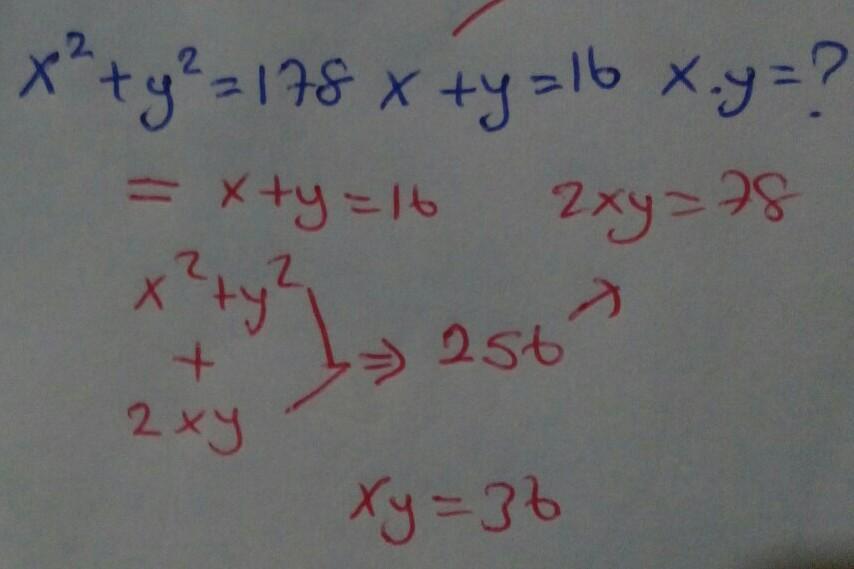 x²+y²=178 x+y=16 x.y=?
= x+y=16 2xy=78
x²+y²
+ ⇒ 256 ↗
2xy
xy=36